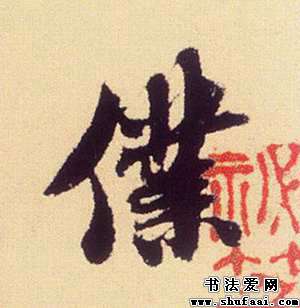 僕
书法爱网
www.shufaai.com